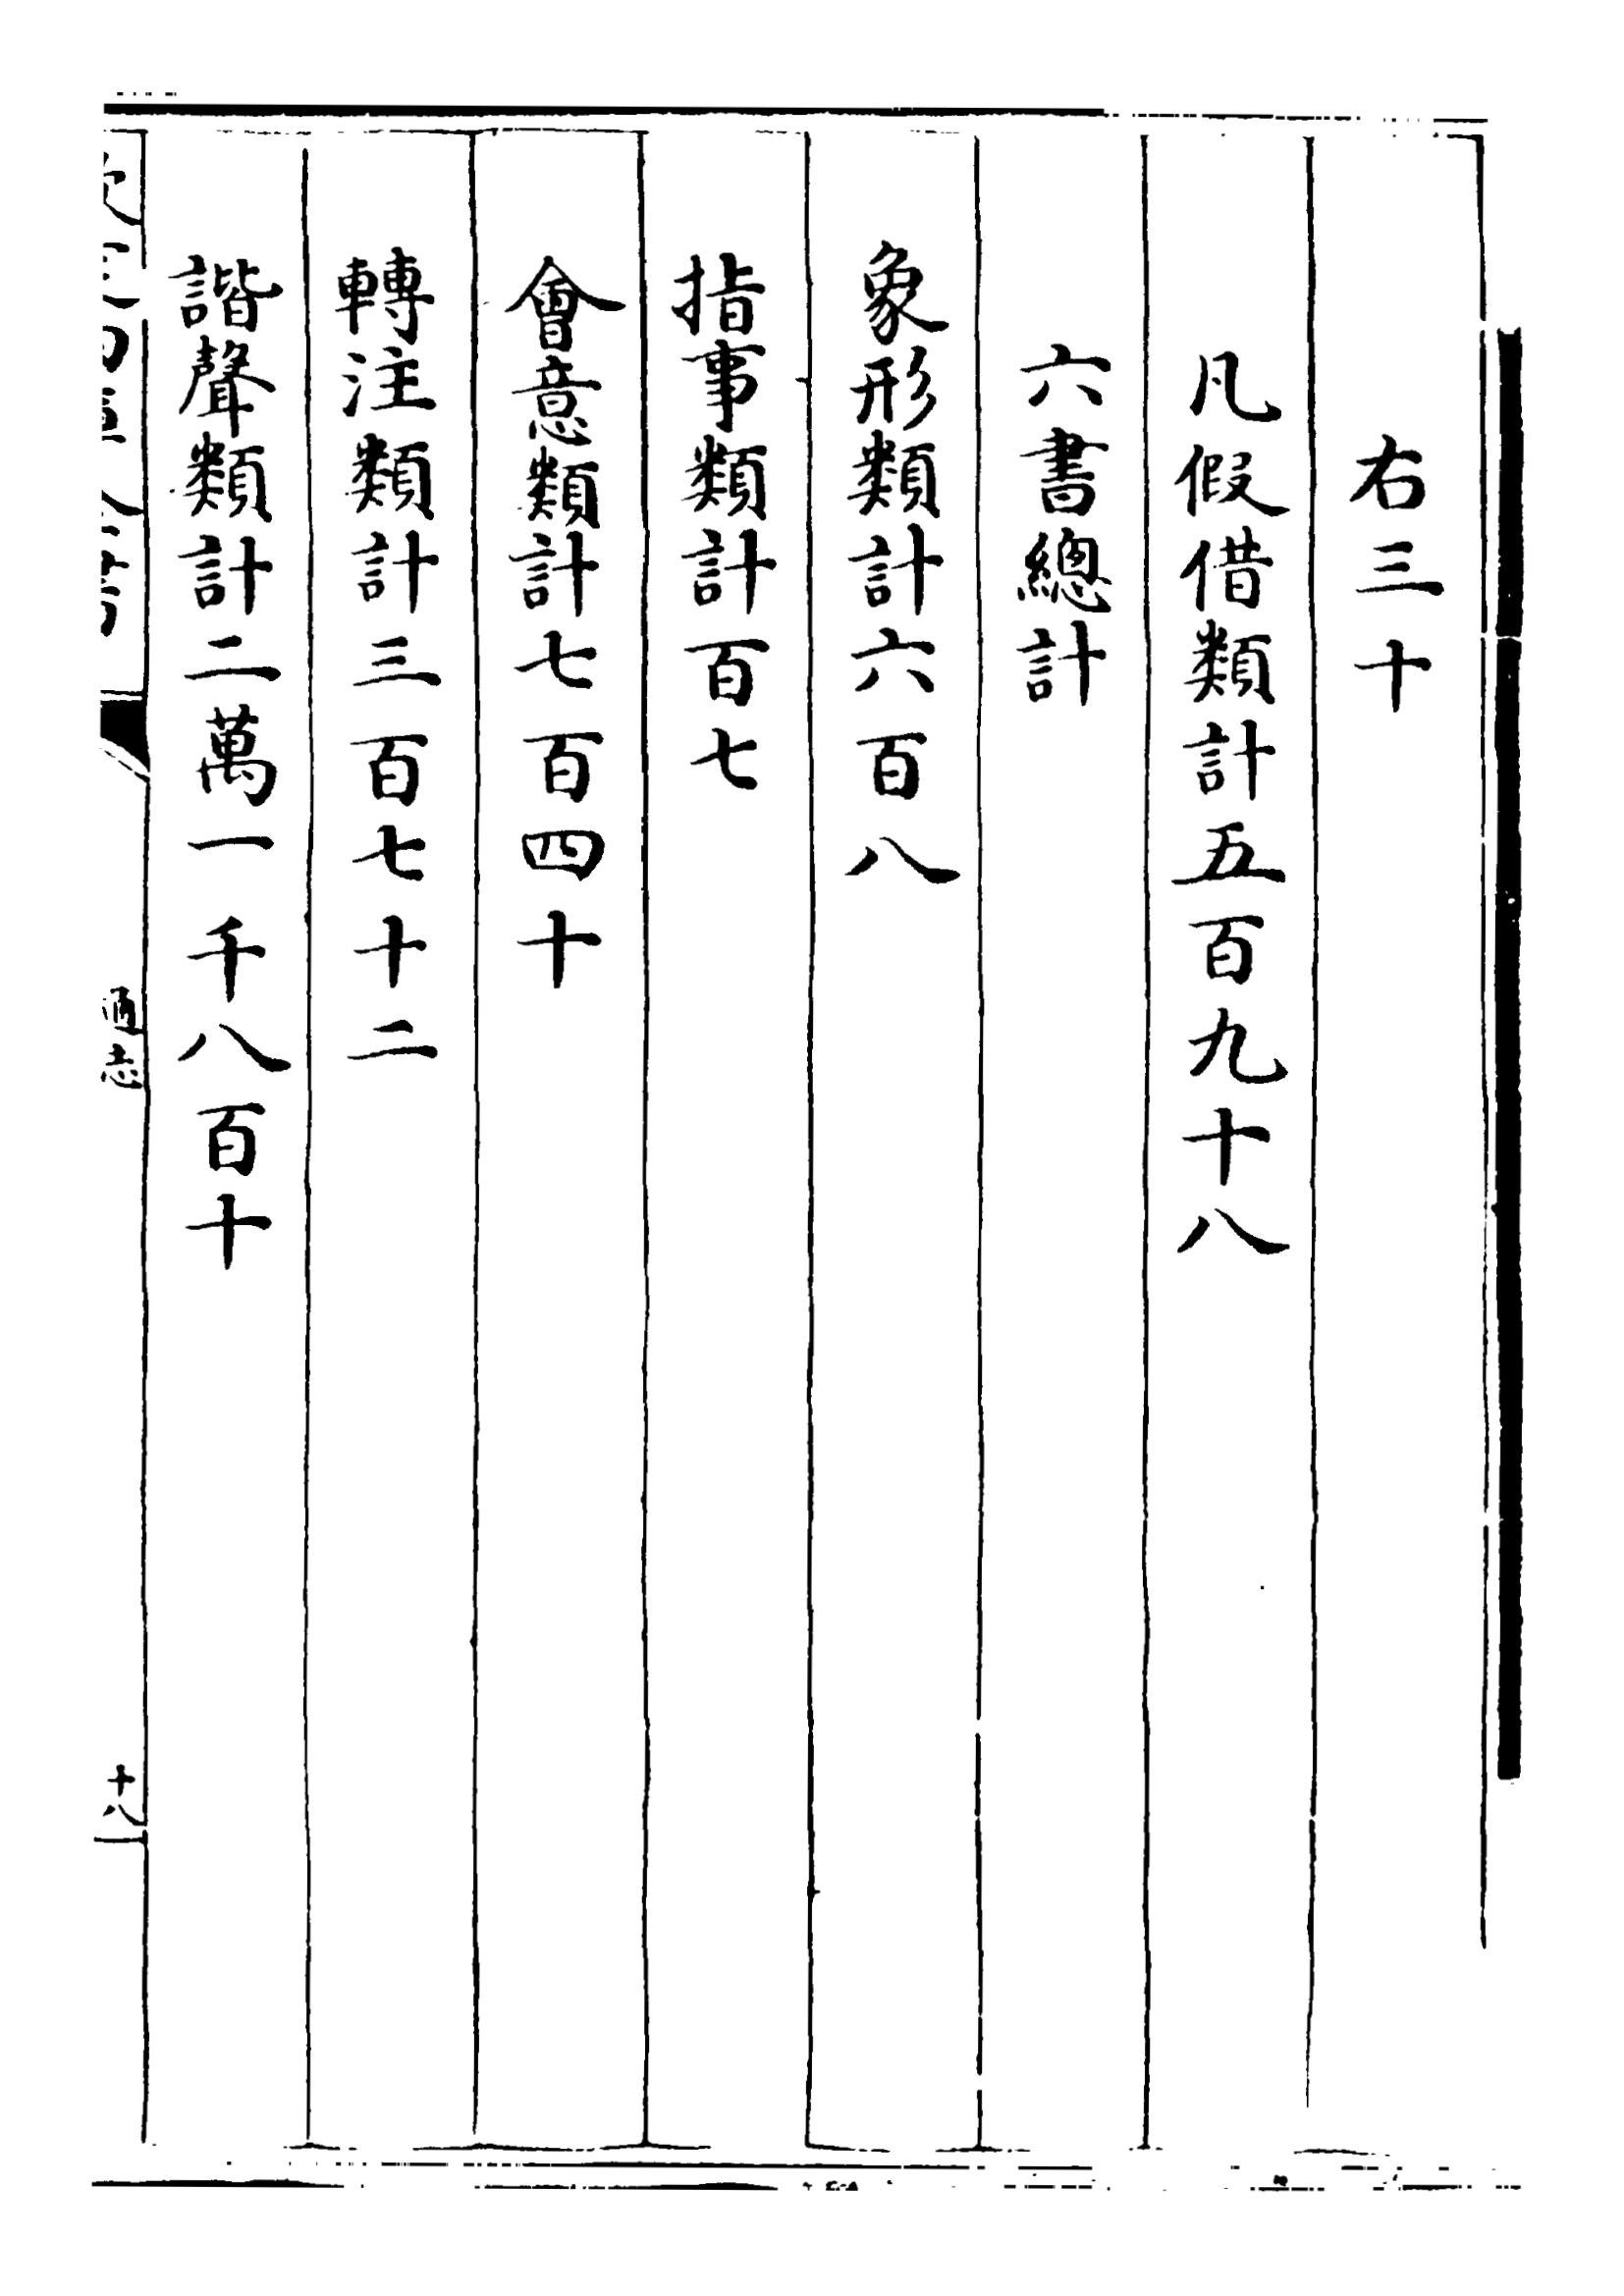 右三十
凡假借類計五百九十八
六書總計
象形類計六百八
指事類計百七
會意類計七百四十
轉注類計三百七十二
諧聲類計二萬一千八百十
通志
十八